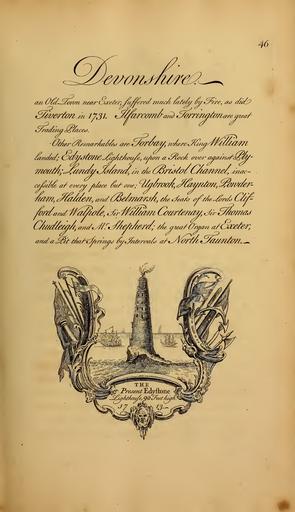 46
Devonshire
an Old Town near Exeter, suffered much lately by Fire, as did
Tiverton in 1731. Ilfarcomb and Torrington are great
Trading Places.
Other Remarkables are Torbay, where King William
landed; Edystone Lighthouse, upon a Rock over against Ply-
mouth; Lundy Island, in the Bristol Channel, inac-
cessible at every place but one; Ugbrook, Haynton, Powder-
ham, Halden, and Bedmarsh, the Seats of the Lords Clif-
ford and Walpole, Sir William Courtenay, Sir Thomas
Chudleigh, and Mr. Shepherd; the great Organ at Exeter,
and a Pit that Springs by Intervals at North Taunton.
THE
Present Edystone
Lighthouse, 90 Feet high
17 13